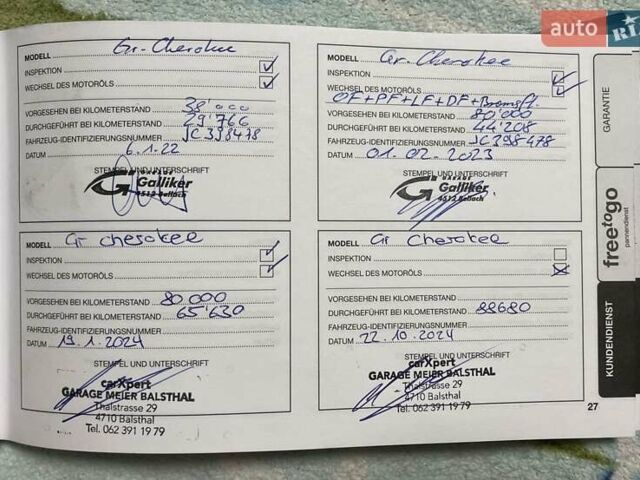 auto RIA
MODELL Gr. Cherokee
INSPEKTION
WECHSEL DES MOTORÖLS
VORGESEHEN BEI KILOMETERSTAND 38'000
DURCHGEFÜHRT BEI KILOMETERSTAND 29'766
FAHRZEUG-IDENTIFIZIERUNGSNUMMER JC398478
DATUM 6.1.22
STEMPEL UND UNTERSCHRIFT
Galliker
4512 Bellach
MODELL Gr. Cherokee
INSPEKTION
WECHSEL DES MOTORÖLS
ÖF+PF+LF+DF+Bremsfl.
VORGESEHEN BEI KILOMETERSTAND 80'000
DURCHGEFÜHRT BEI KILOMETERSTAND 44'208
FAHRZEUG-IDENTIFIZIERUNGSNUMMER JC398478
DATUM 01.02.2023
STEMPEL UND UNTERSCHRIFT
Galliker
4512 Bellach
MODELL Gr cherokee
INSPEKTION
WECHSEL DES MOTORÖLS
VORGESEHEN BEI KILOMETERSTAND 80000
DURCHGEFÜHRT BEI KILOMETERSTAND 65'630
FAHRZEUG-IDENTIFIZIERUNGSNUMMER
DATUM 19.1.2024
STEMPEL UND UNTERSCHRIFT
carXpert
GARAGE MEIER BALSTHAL
Thalstrasse 29
4710 Balsthal
Tel. 062 391 19 79
MODELL Gr Cherokee
INSPEKTION
WECHSEL DES MOTORÖLS
VORGESEHEN BEI KILOMETERSTAND
DURCHGEFÜHRT BEI KILOMETERSTAND 88680
FAHRZEUG-IDENTIFIZIERUNGSNUMMER
DATUM 22.10.2024
STEMPEL UND UNTERSCHRIFT
carXpert
GARAGE MEIER BALSTHAL
Thalstrasse 29
4710 Balsthal
Tel. 062 391 19 79
GARANTIE
freetogo
pannendienst
KUNDENDIENST
27